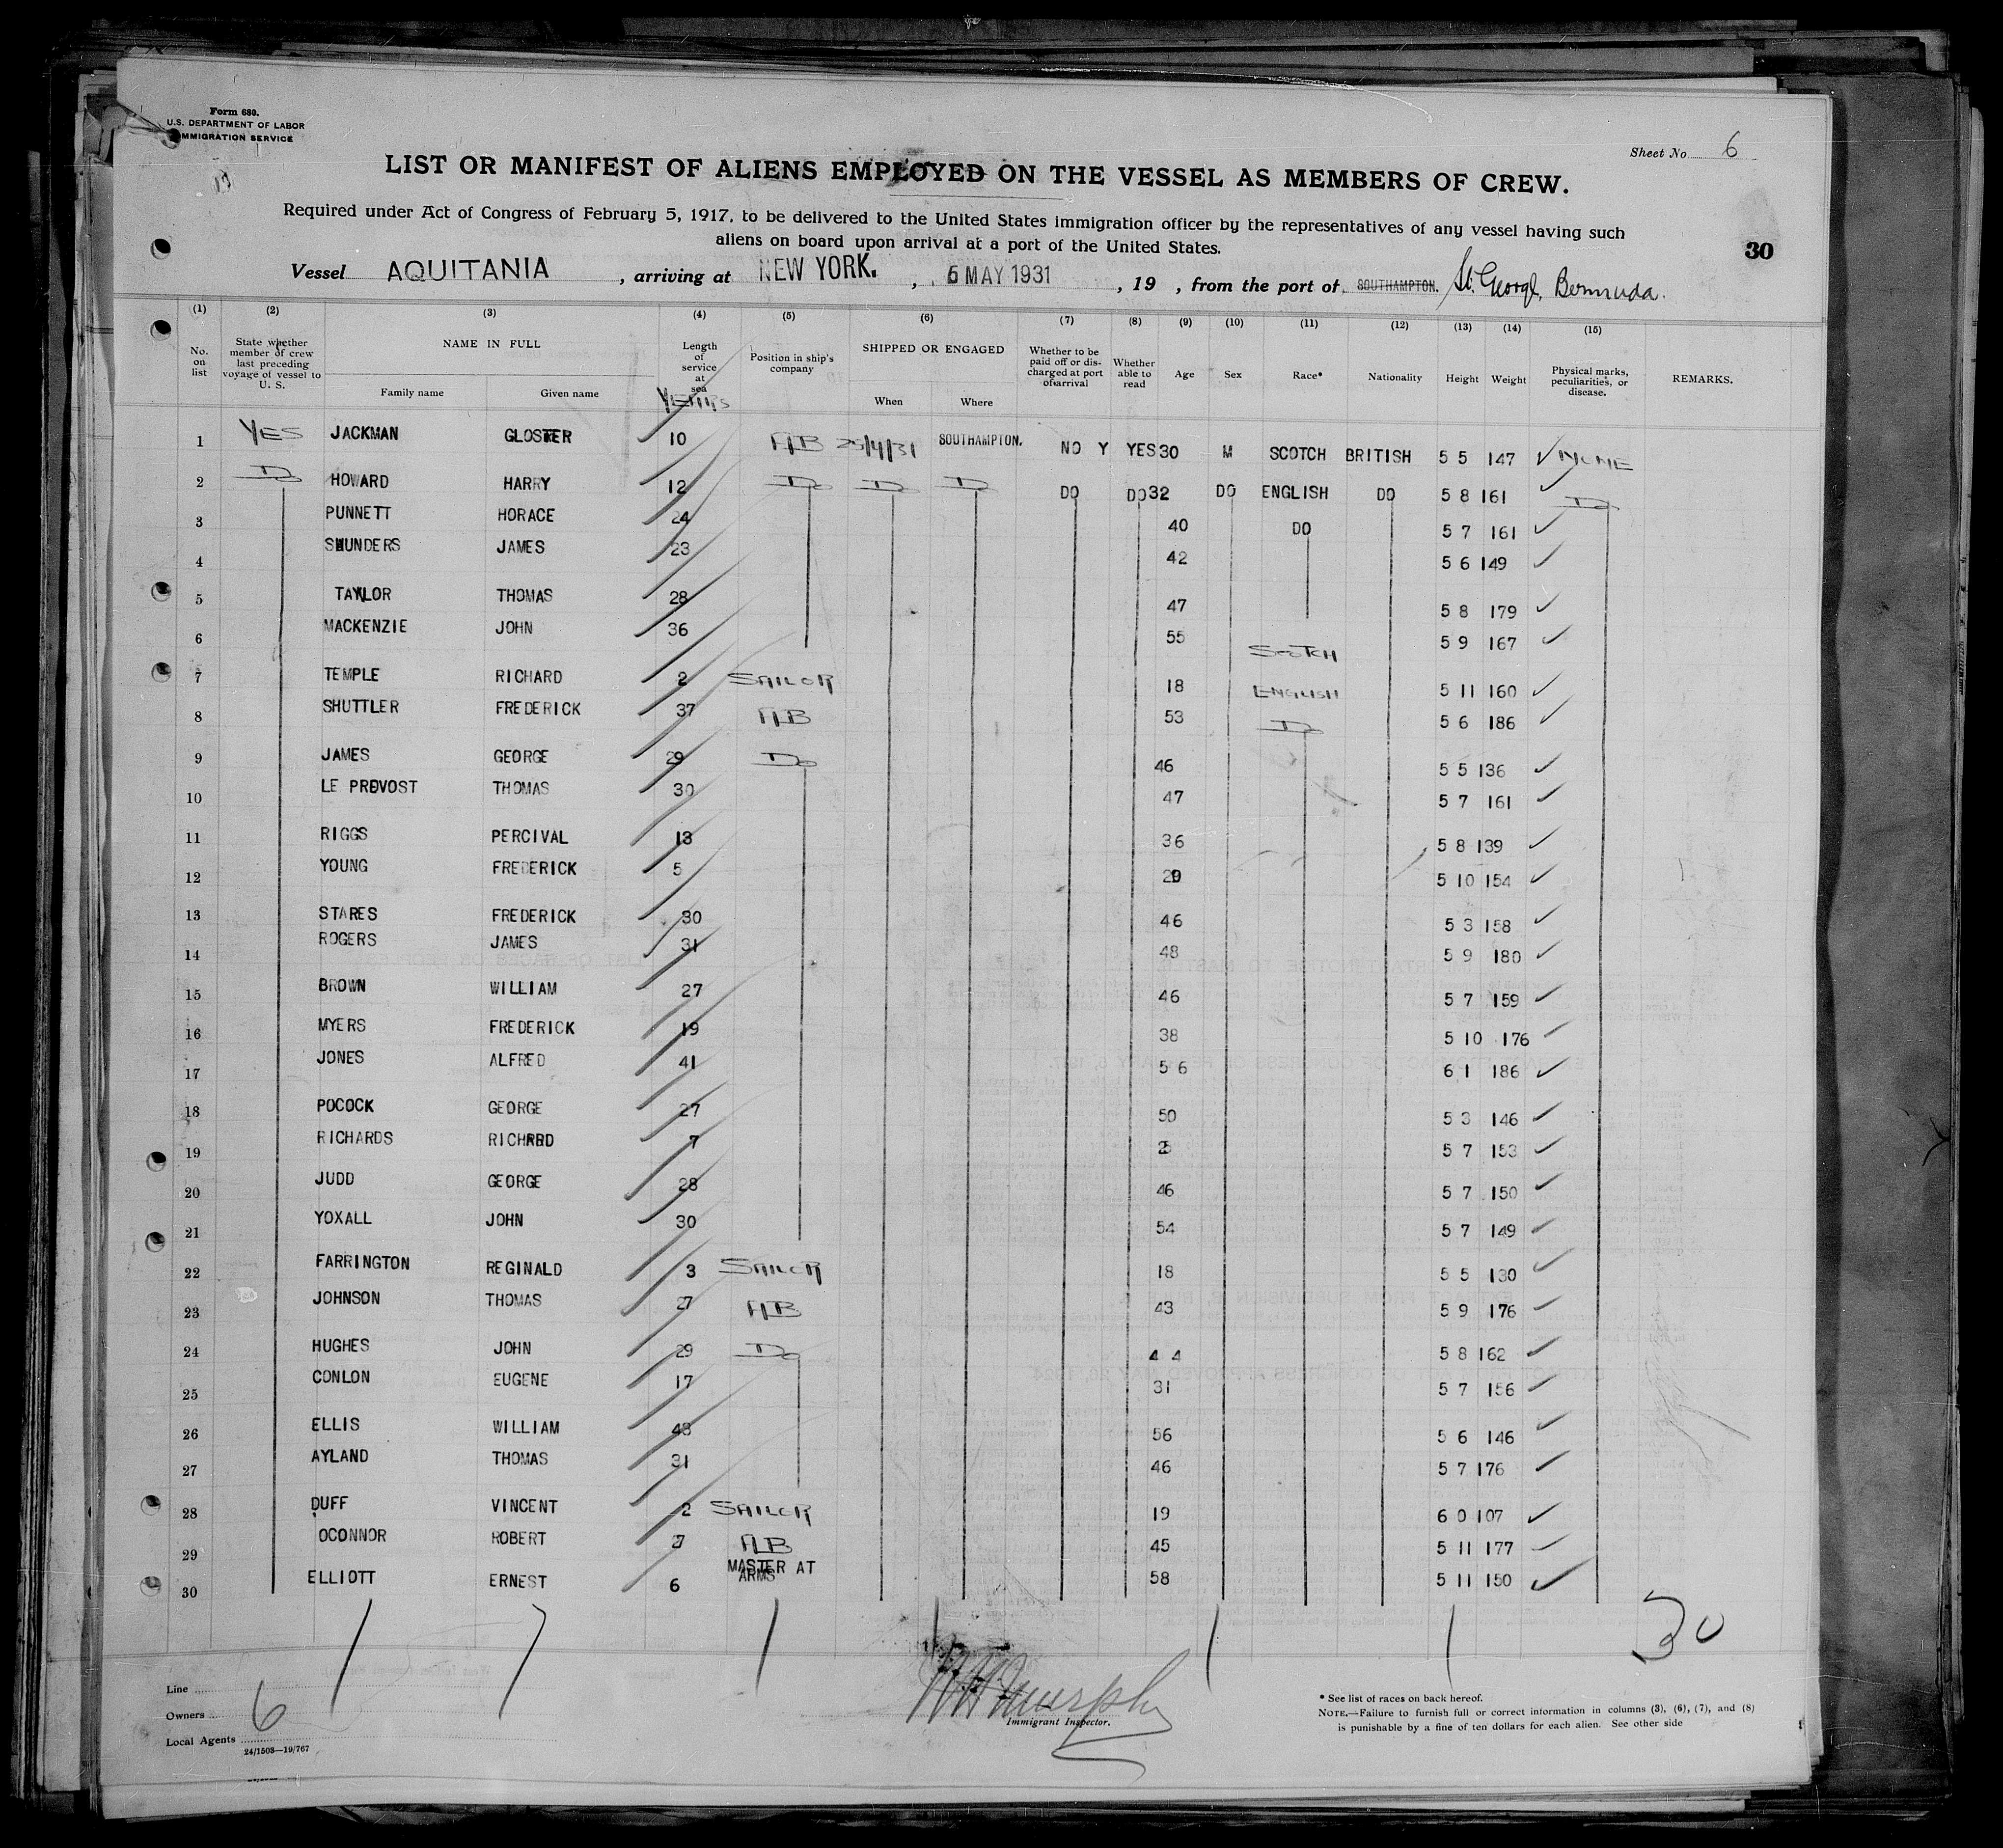 Form 680.
U.S. DEPARTMENT OF LABOR
IMMIGRATION SERVICE
Sheet No 6
LIST OR MANIFEST OF ALIENS EMPLOYED ON THE VESSEL AS MEMBERS OF CREW.
Required under Act of Congress of February 5, 1917, to be delivered to the United States immigration officer by the representatives of any vessel having such
aliens on board upon arrival at a port of the United States.
30
Vessel AQUITANIA, arriving at NEW YORK., 6 MAY 1931, 19 , from the port of SOUTHAMPTON. St. George, Bermuda.
(1) (2) (3) (4) (5) (6) (7) (8) (9) (10) (11) (12) (13) (14) (15)
No. on list State whether member of crew last preceding voyage of vessel to U. S. NAME IN FULL Family name Given name Length of service at sea YEARS Position in ship's company SHIPPED OR ENGAGED When Where Whether to be paid off or discharged at port of arrival Whether able to read Age Sex Race* Nationality Height Weight Physical marks, peculiarities, or disease. REMARKS.
1 YES JACKMAN GLOSTER 10 AB 25/4/31 SOUTHAMPTON. NO Y YES 30 M SCOTCH BRITISH 5 5 147 ✓ NONE
2 Do HOWARD HARRY 12 Do Do Do DO DO 32 DO ENGLISH DO 5 8 161 ✓ Do
3 PUNNETT HORACE 24 40 DO 5 7 161 ✓
4 SAUNDERS JAMES 23 42 5 6 149 ✓
5 TAYLOR THOMAS 28 47 5 8 179 ✓
6 MACKENZIE JOHN 36 55 SCOTCH 5 9 167 ✓
7 TEMPLE RICHARD 2 SAILOR 18 ENGLISH 5 11 160 ✓
8 SHUTTLER FREDERICK 37 AB 53 Do 5 6 186 ✓
9 JAMES GEORGE 29 Do 46 5 5 136 ✓
10 LE PROVOST THOMAS 30 47 5 7 161 ✓
11 RIGGS PERCIVAL 13 36 5 8 139 ✓
12 YOUNG FREDERICK 5 29 5 10 154 ✓
13 STARES FREDERICK 30 46 5 3 158 ✓
14 ROGERS JAMES 31 48 5 9 180 ✓
15 BROWN WILLIAM 27 46 5 7 159 ✓
16 MYERS FREDERICK 19 38 5 10 176 ✓
17 JONES ALFRED 41 56 6 1 186 ✓
18 POCOCK GEORGE 27 50 5 3 146 ✓
19 RICHARDS RICHARD 7 25 5 7 153 ✓
20 JUDD GEORGE 28 46 5 7 150 ✓
21 YOXALL JOHN 30 54 5 7 149 ✓
22 FARRINGTON REGINALD 3 SAILOR 18 5 5 130 ✓
23 JOHNSON THOMAS 27 AB 43 5 9 176 ✓
24 HUGHES JOHN 29 Do 44 5 8 162 ✓
25 CONLON EUGENE 17 31 5 7 156 ✓
26 ELLIS WILLIAM 43 56 5 6 146 ✓
27 AYLAND THOMAS 31 46 5 7 176 ✓
28 DUFF VINCENT 2 SAILOR 19 6 0 107 ✓
29 OCONNOR ROBERT AB 45 5 11 177 ✓
30 ELLIOTT ERNEST 6 MASTER AT ARMS 58 5 11 150 ✓
30
Line
Owners 6
Local Agents
24/1503—19/767
Murphy
Immigrant Inspector.
* See list of races on back hereof.
NOTE.—Failure to furnish full or correct information in columns (3), (6), (7), and (8)
is punishable by a fine of ten dollars for each alien. See other side